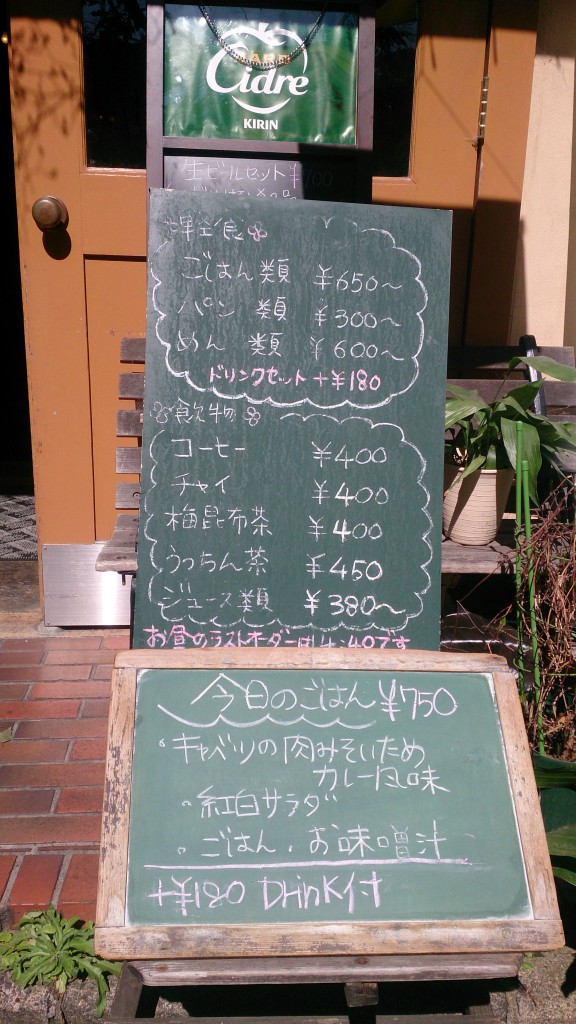 HARD
Cidre
KIRIN
生ビールセット ¥700
軽食
ごはん類 ¥650～
パン 類 ¥300～
めん 類 ¥600～
ドリンクセット +¥180
飲物
コーヒー ¥400
チャイ ¥400
梅昆布茶 ¥400
うっちん茶 ¥450
ジュース類 ¥380～
お昼のラストオーダーは4:40です
今日のごはん ¥750
・キャベツの肉みそいため
カレー風味
・紅白サラダ
・ごはん、お味噌汁
+¥180 DrinK付